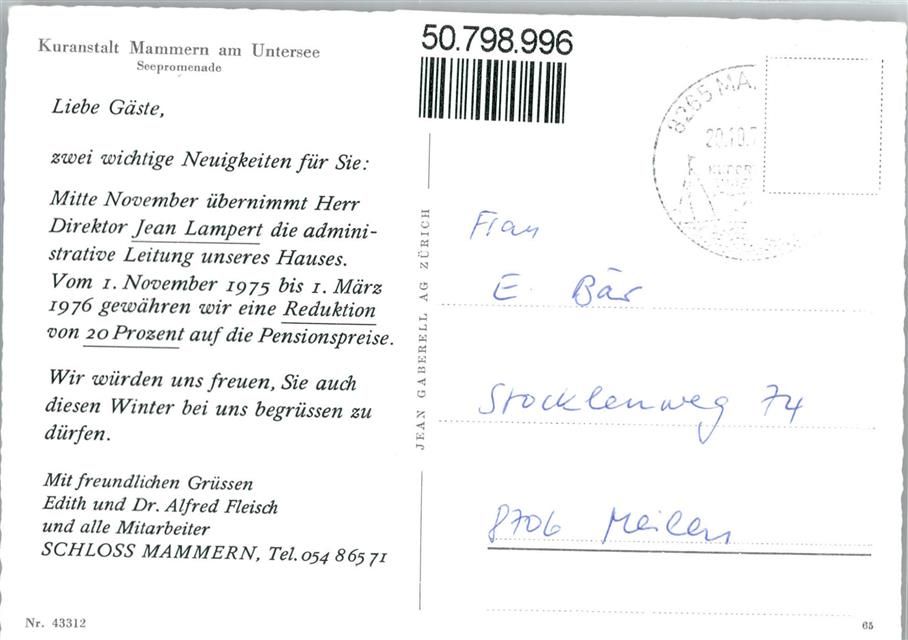 Kuranstalt Mammern am Untersee
Seepromenade
Liebe Gäste,
zwei wichtige Neuigkeiten für Sie:
Mitte November übernimmt Herr
Direktor Jean Lampert die admini-
strative Leitung unseres Hauses.
Vom 1. November 1975 bis 1. März
1976 gewähren wir eine Reduktion
von 20 Prozent auf die Pensionspreise.
Wir würden uns freuen, Sie auch
diesen Winter bei uns begrüssen zu
dürfen.
Mit freundlichen Grüssen
Edith und Dr. Alfred Fleisch
und alle Mitarbeiter
SCHLOSS MAMMERN, Tel. 054 8 65 71
Nr. 43312
JEAN GABERELL AG ZÜRICH
50.798.996
8265 MA
20.10.7
Frau
E. Bär
Stocklenweg 74
8706 Meilen
65